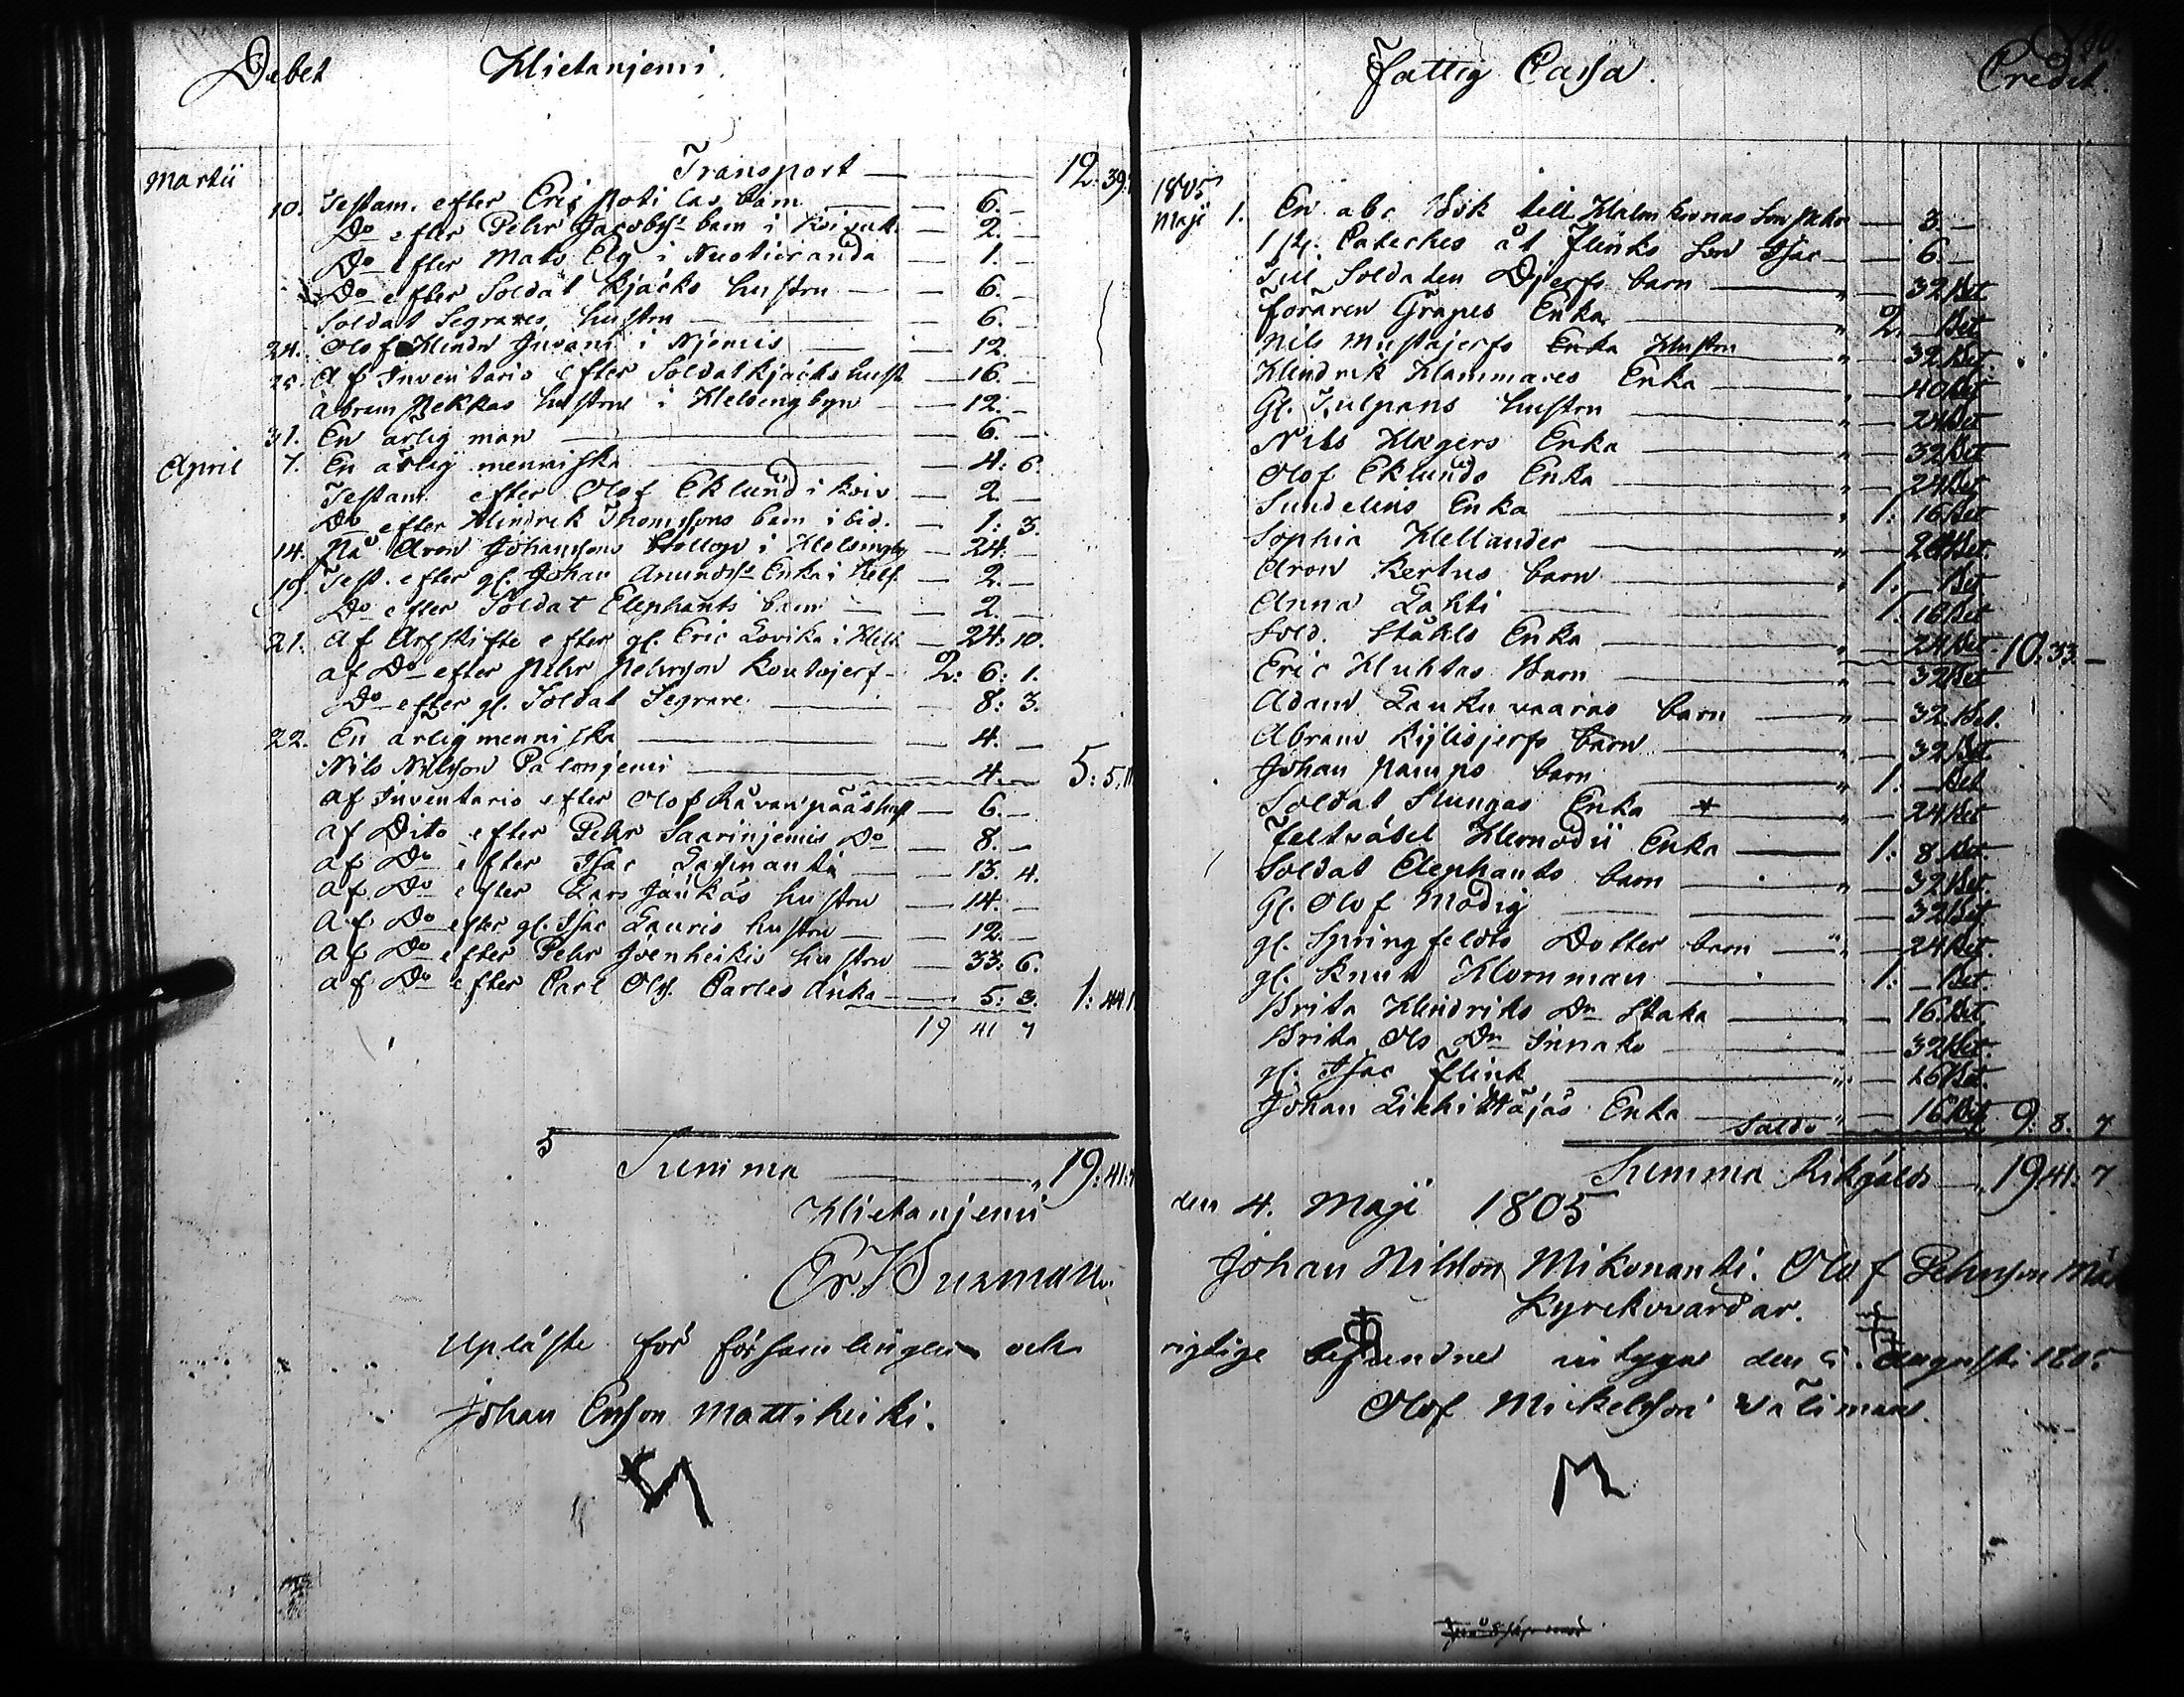 Debet Hietanjemi
Transport — 12: 39:
Martii
10. Testam. efter Eric barn — 6. —
Do efter Pehr Jacobss barn i — 2. —
Do efter Mats Elg i Nuotioranda — 1. —
Do efter Soldat Kjäcks hustru — 6. —
Soldat Segrares hustru — 6. —
24. Olof Hindr Juvani i Njemis — 12
25. Af Inventario efter Soldat Kjäcks hust — 16. —
Abram Pekkas hustru i Helsingbyn — 12. —
31. En ärlig man — 6. —
April 7. En ärlig menniska — 4: 6.
Testam. efter Olof Eklund i Koiv — 2. —
Do efter Hindrik Thomssons barn ibid. — 1: 3.
14. På Aron Johanssons Bröllop i Helsingby — 24. —
19. Test. efter gl. Johan Anundss Enka i Hels. — 2. —
Do efter Soldat Elephants barn — 2. —
21. Af Arfskifte efter gl. Eric Lovika i Hels — 24: 10.
af Do efter Pehr Pehrsson Koutojerf — 2: 6: 1.
Do efter gl. Soldat Segrare — 8: 3.
22. En ärlig menniska — 4. —
Nils Nilsson Palonjemi — 4. — 5: 5.
Af Inventario efter Olof — 6. —
Af Dito efter Pehr Saarinjemis Do — 8. —
af Do efter Isac — 13. 4.
af Do efter Lars Jaukas hustru — 14. —
Af Do efter gl. Isac Lauris hustru — 12. —
Af Do efter Pehr hustru — 33: 6.
af Do efter Carl Olss. Carles änka — 5: 3. 1: 44.
19 41 7
5
Summa — 19: 41:
Hietanjemi
Er. Burman
Upläste för församlingen och
Johan Ersson Mattiheiki.
Fattig Cassa. Credit.
1805
Maji 1. En abc Bok till Halmkronas son — 3. —
1 st. Cateches åt Flinks Son Isac — 6. —
Till Soldaten Djerfs barn — 32 Bet
Föraren Grapes Enka — 2. — Bet
Nils Mustajerfs Enka Hustru — 32 Bet.
Hindrik Hammares Enka — 40 Bet
Gl. Tulpans hustru — 24 Bet
Nils Hagers Enka — 32 Bet
Olof Eklunds Enka — 24 Bet
Sundelins Enka — 1: 16 Bet
Sophia Hellander — 24 Bet.
Aron Kertus barn — 1. — Bet
Anna Lahti — 1: 16 Bet
Sold. Ståhls Enka — 24 Bet. 10: 33. —
Eric Huhtas Barn — 32 Bet
Adam Laukuvaaras barn — 32 Bet.
Abram Kylisjerfs barn — 32 Bet.
Johan Pamps barn — 1. — Bet
Soldat Slungas Enka * — 24 Bet
Feltväbel Hernodii Enka — 1: 8 Bet.
Soldat Elephants barn — 32 Bet.
Gl. Olof Modig — 32 Bet
gl. Springfeldts Dotter barn — 24 Bet.
gl. Knut Homman — 1: — Bet.
Brita Hindriks Dr Staka — 16. Bet
Brita Ols Dr — 32 Bet.
gl. Isac Flink — 16 Bet.
Johan Enka — 16 Bet
Saldo — 9: 8. 7
Summa Riksgälds — 19: 41: 7
den 4. Maji 1805
Johan Nilsson Mikonanti. Olof Pehrsson
Kyrckovärdar.
rigtige befundne intygar den 5. Augusti 1805
Olof Mickelsson Välimaa.